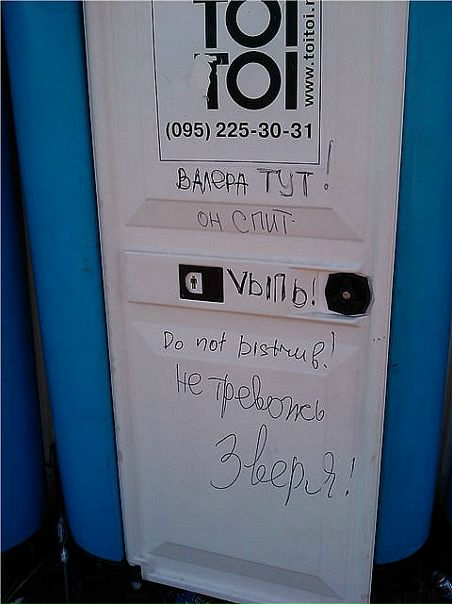 TOI
TOI
www.toitoi.r
(095) 225-30-31
ВАЛЕРА ТУТ!
ОН СПИТ
VЫПЬ!
Do not
Не тревожь
Зверя!